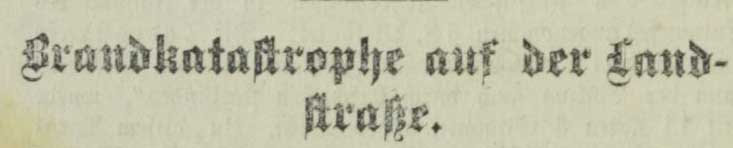 Brandkatastrophe auf der Land-
straße.